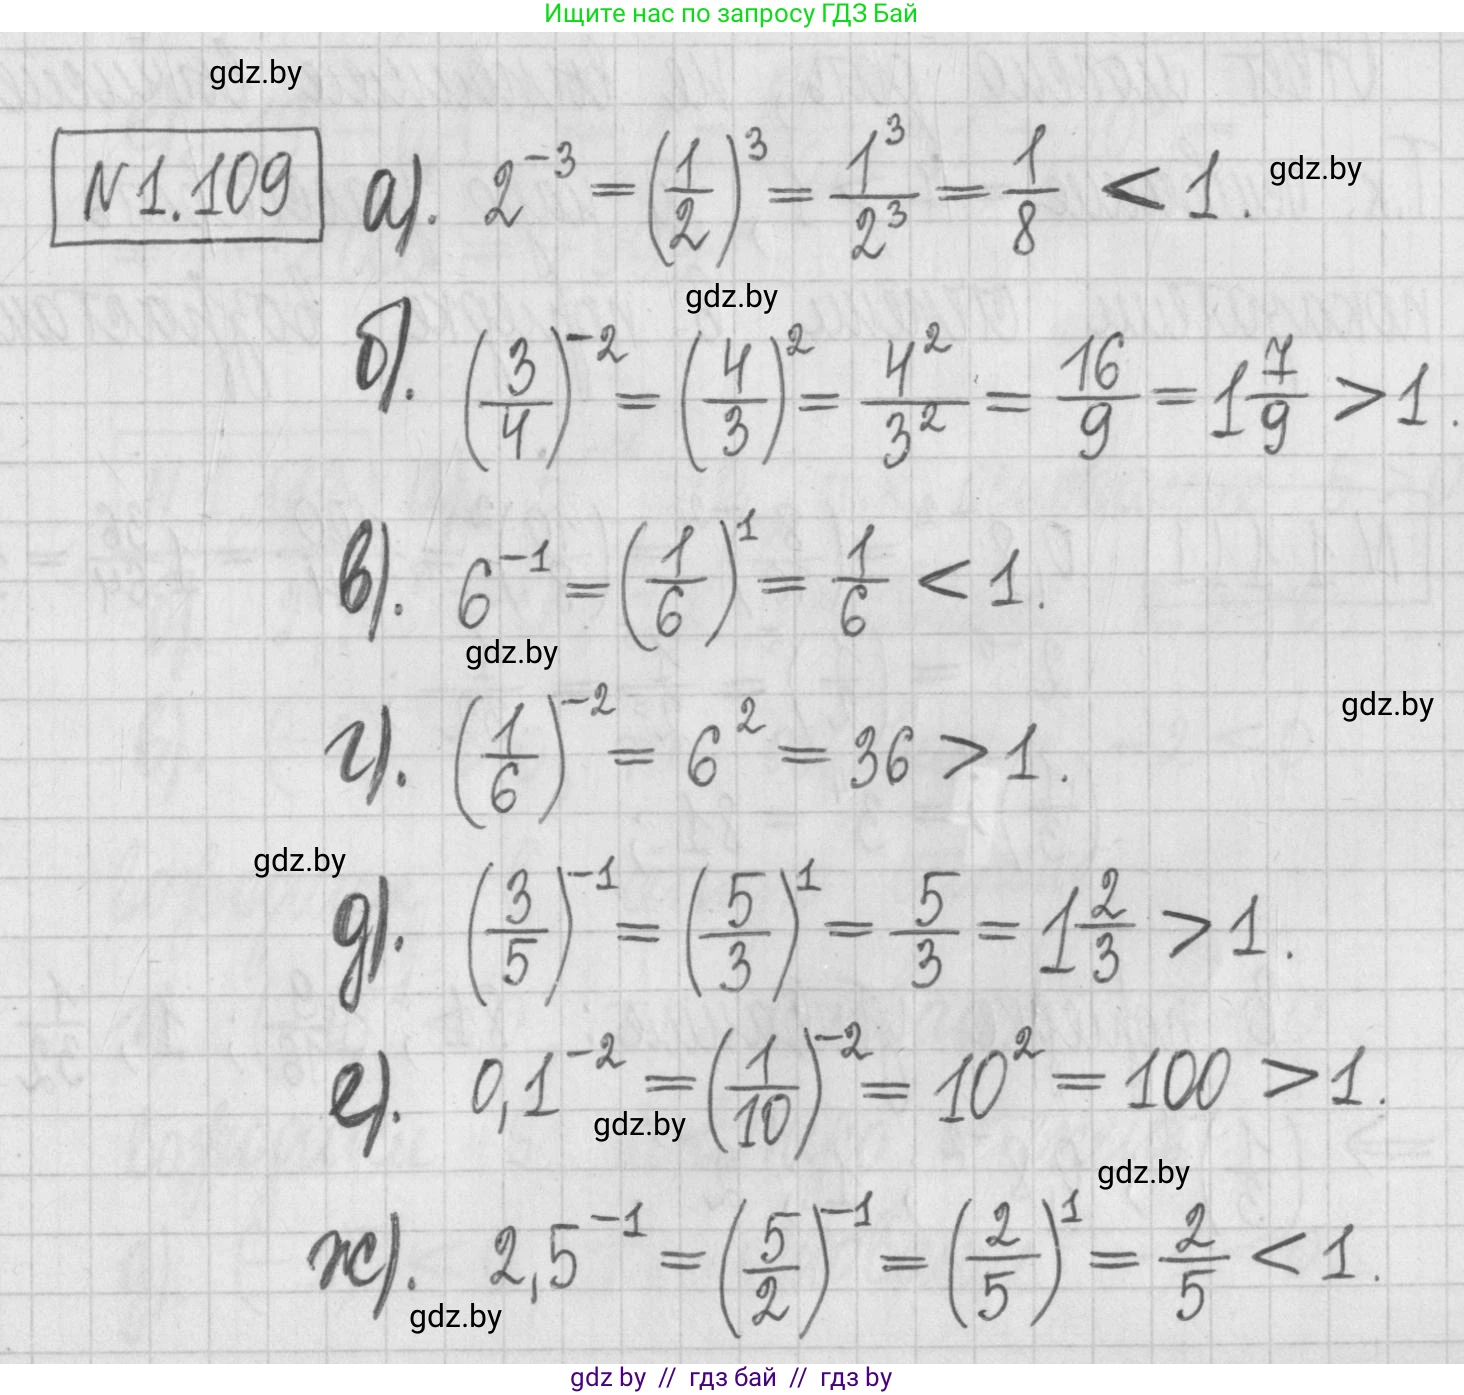 Ищите нас по запросу ГДЗ Бай
gdz.by
N1.109 а). 2^{-3} = (1/2)^3 = 1^3/2^3 = 1/8 < 1.
gdz.by
gdz.by
б). (3/4)^{-2} = (4/3)^2 = 4^2/3^2 = 16/9 = 1 7/9 > 1.
в). 6^{-1} = (1/6)^1 = 1/6 < 1.
gdz.by
gdz.by
г). (1/6)^{-2} = 6^2 = 36 > 1.
gdz.by
д). (3/5)^{-1} = (5/3)^1 = 5/3 = 1 2/3 > 1.
е). 0,1^{-2} = (1/10)^{-2} = 10^2 = 100 > 1.
gdz.by
gdz.by
ж). 2,5^{-1} = (5/2)^{-1} = (2/5)^1 = 2/5 < 1.
gdz.by
gdz by // гдз бай // гдз by